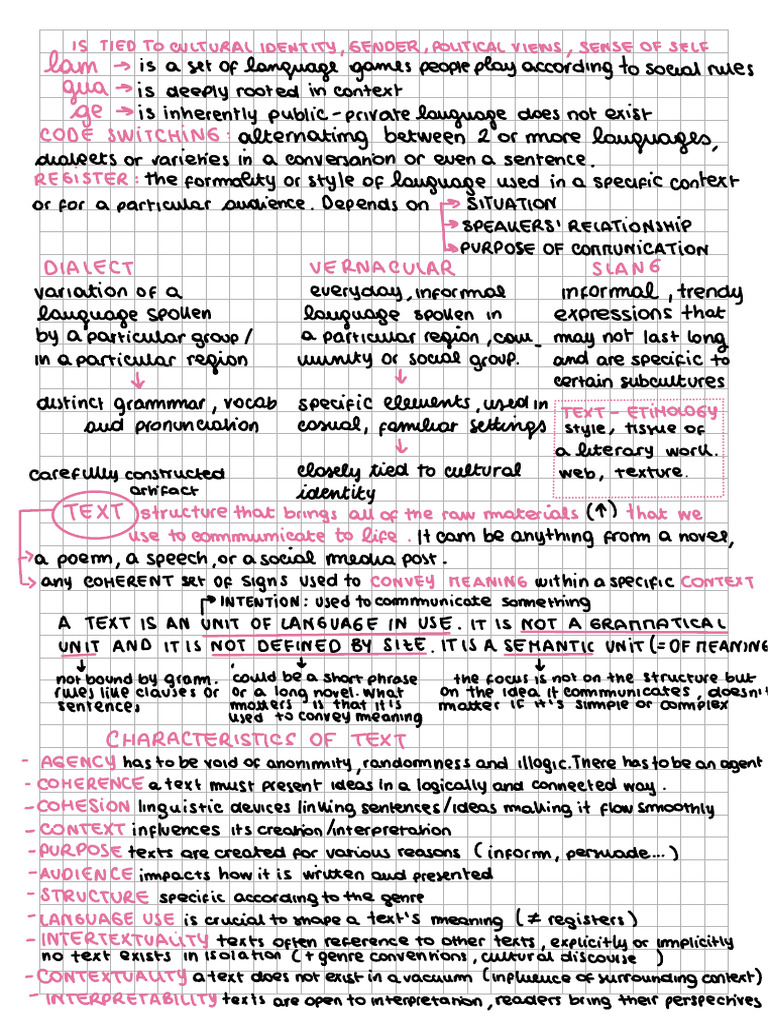 IS TIED TO CULTURAL IDENTITY, GENDER, POLITICAL VIEWS, SENSE OF SELF
lam → is a set of language games people play according to social rules
gua → is deeply rooted in context
ge → is inherently public - private language does not exist
CODE SWITCHING: alternating between 2 or more languages,
dialects or varieties in a conversation or even a sentence.
REGISTER: the formality or style of language used in a specific context
or for a particular audience. Depends on → SITUATION
→ SPEAKERS' RELATIONSHIP
→ PURPOSE OF COMMUNICATION
DIALECT
variation of a
language spoken
by a particular group/
in a particular region
↓
distinct grammar, vocab
and pronunciation
VERNACULAR
everyday, informal
language spoken in
a particular region, com_
munity or social group.
↓
specific elements, used in
casual, familiar settings
↓
closely tied to cultural
identity
SLANG
informal, trendy
expressions that
may not last long
and are specific to
certain subcultures
TEXT - ETIMOLOGY
style, tissue of
a literary work.
web, texture.
carefully constructed
artifact
TEXT structure that brings all of the raw materials (↑) that we
use to communicate to life. It can be anything from a novel,
→ a poem, a speech, or a social media post.
→ any COHERENT set of signs used to CONVEY MEANING within a specific CONTEXT
→ INTENTION: used to communicate something
A TEXT IS AN UNIT OF LANGUAGE IN USE. IT IS NOT A GRAMMATICAL
UNIT AND IT IS NOT DEFINED BY SIZE. IT IS A SEMANTIC UNIT (= OF MEANING
↓
not bound by gram.
rules like clauses or
sentences
↓
could be a short phrase
or a long novel. What
matters is that it is
used to convey meaning
↓
the focus is not on the structure but
on the idea it communicates, doesn't
matter if it's simple or complex
CHARACTERISTICS OF TEXT
- AGENCY has to be void of anonimity, randomness and illogic. There has to be an agent
- COHERENCE a text must present ideas in a logically and connected way.
- COHESION linguistic devices linking sentences/ideas making it flow smoothly
- CONTEXT influences its creation/interpretation
- PURPOSE texts are created for various reasons (inform, persuade...)
- AUDIENCE impacts how it is written and presented
- STRUCTURE specific according to the genre
- LANGUAGE USE is crucial to shape a text's meaning (≠ registers)
- INTERTEXTUALITY texts often reference to other texts, explicitly or implicitly
no text exists in isolation (+ genre conventions, cultural discourse )
- CONTEXTUALITY a text does not exist in a vacuum (influence of surrounding context)
- INTERPRETABILITY texts are open to interpretation, readers bring their perspectives